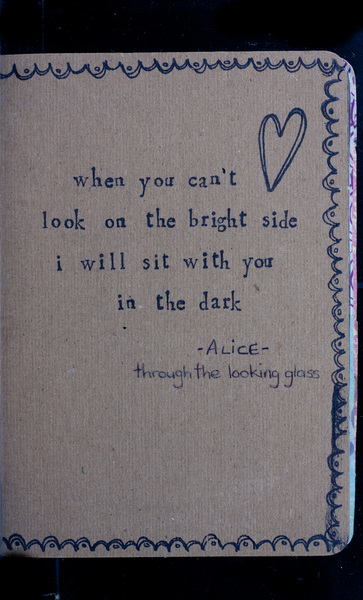 when you can't
look on the bright side
i will sit with you
in the dark
-ALiCE-
through the looking glass